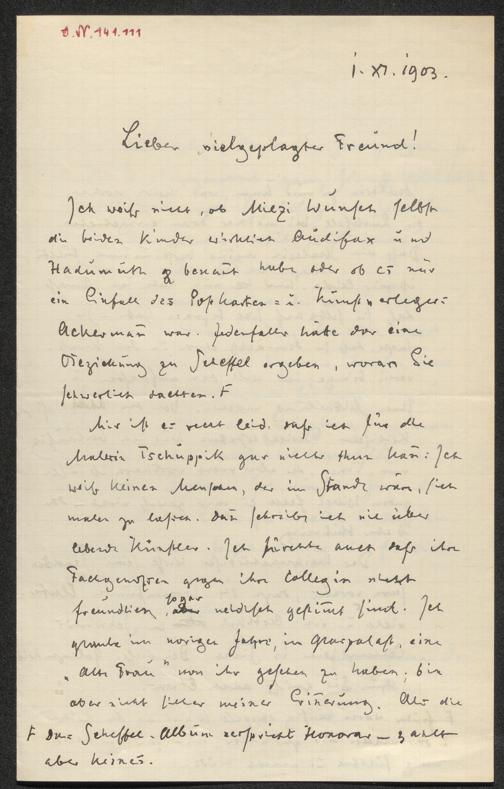 I.N. 141.111
1. XI. 1903.
Lieber vielgeplagter Freund!
Ich weiß nicht, ob Miezi Wunsch selbst
die beiden Kinder wirklich Audifax und
Hadumuth benannt habe oder ob es nur
ein Einfall des Postkarten= u. Kunstverleger=
Ackerman̄ war. Jedenfalls hätte das eine
Beziehung zu Scheffel ergeben, woran Sie
schwerlich dachten. F
Mir ist es recht leid, daß ich für die
Malerin Tschuppik gar nichts thun kan̄: Ich
weiß keinen Menschen, der im Stande wäre, sich
malen zu lassen. Dan̄ schreibe ich nie über
lebende Künstler. Ich fürchte auch daß ihre
Fachgenossen gegen ihre Collegin nicht
freundlich, sogar neidisch gesin̄t sind. Ich
glaube im vorigen Jahre, im Glaspalast, eine
„Alte Frau" von ihr gesehen zu haben; bin
aber nicht sicher meiner Erin̄erung. Als die
F Das Scheffel-Album verspricht Honorar — zahlt
aber keines.